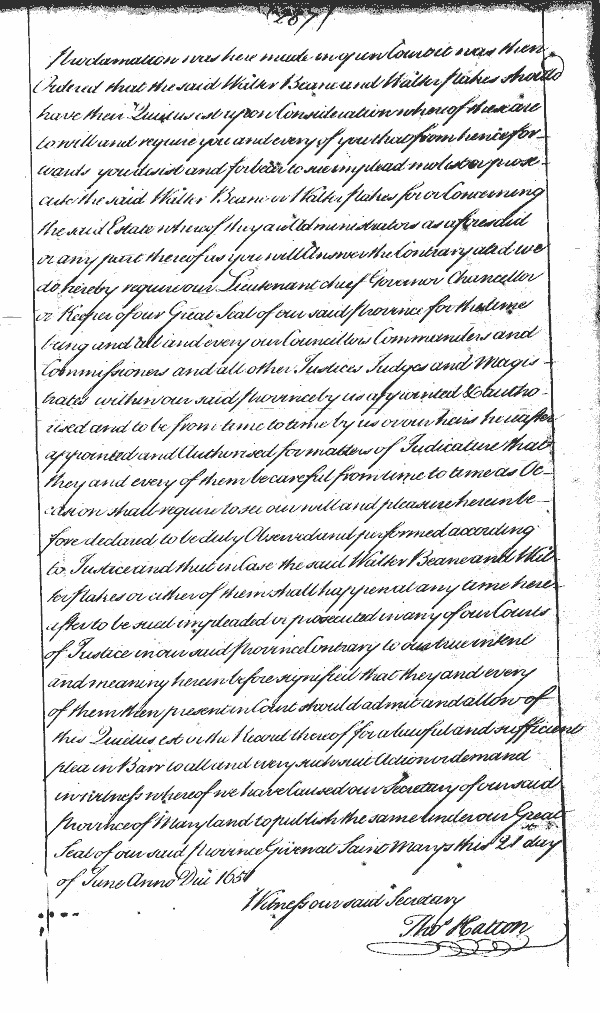 (287)
Proclamation was here made in open Court it was then
Ordered that the said Walter Beane and Walter Pakes should
have their Quietus est upon Consideration whereof these are
to will and require you and every of you that from hencefor-
wards you desist and forbear to sue implead molest or prose-
cute the said Walter Beane or Walter Pakes for or Concerning
the said Estate whereof they are Administrators as aforesaid
or any part thereof as you will Answer the Contrary And we
do hereby require our Lieutenant chief Governor Chancellor
or Keeper of our Great Seal of our said province for the time
being and all and every our Councellors Commanders and
Commissioners and all other Justices Judges and Magis-
trates within our said province by us appointed & autho-
rised and to be from time to time by us or our heirs hereafter
appointed and Authorised for matters of Judicature that
they and every of them be careful from time to time as Oc-
casion shall require to see our will and pleasure herein be-
fore declared to be duly Observed and performed according
to Justice and that in Case the said Walter Beane and Wal-
ter Pakes or either of them shall happen at any time here-
after to be sued impleaded or prosecuted in any of our Courts
of Justice in our said province Contrary to our true intent
and meaning herein before signified that they and every
of them then present in Court should admit and allow of
this Quietus est or the Record thereof for a lawful and sufficient
plea in Barr to all and every such suit Action or demand
in witness whereof we have Caused our Secretary of our said
province of Maryland to publish the same under our Great
Seal of our said province Given at Saint Marys this 21st day
of June Anno Dni 165
Witness our said Secretary
Thos Hatton